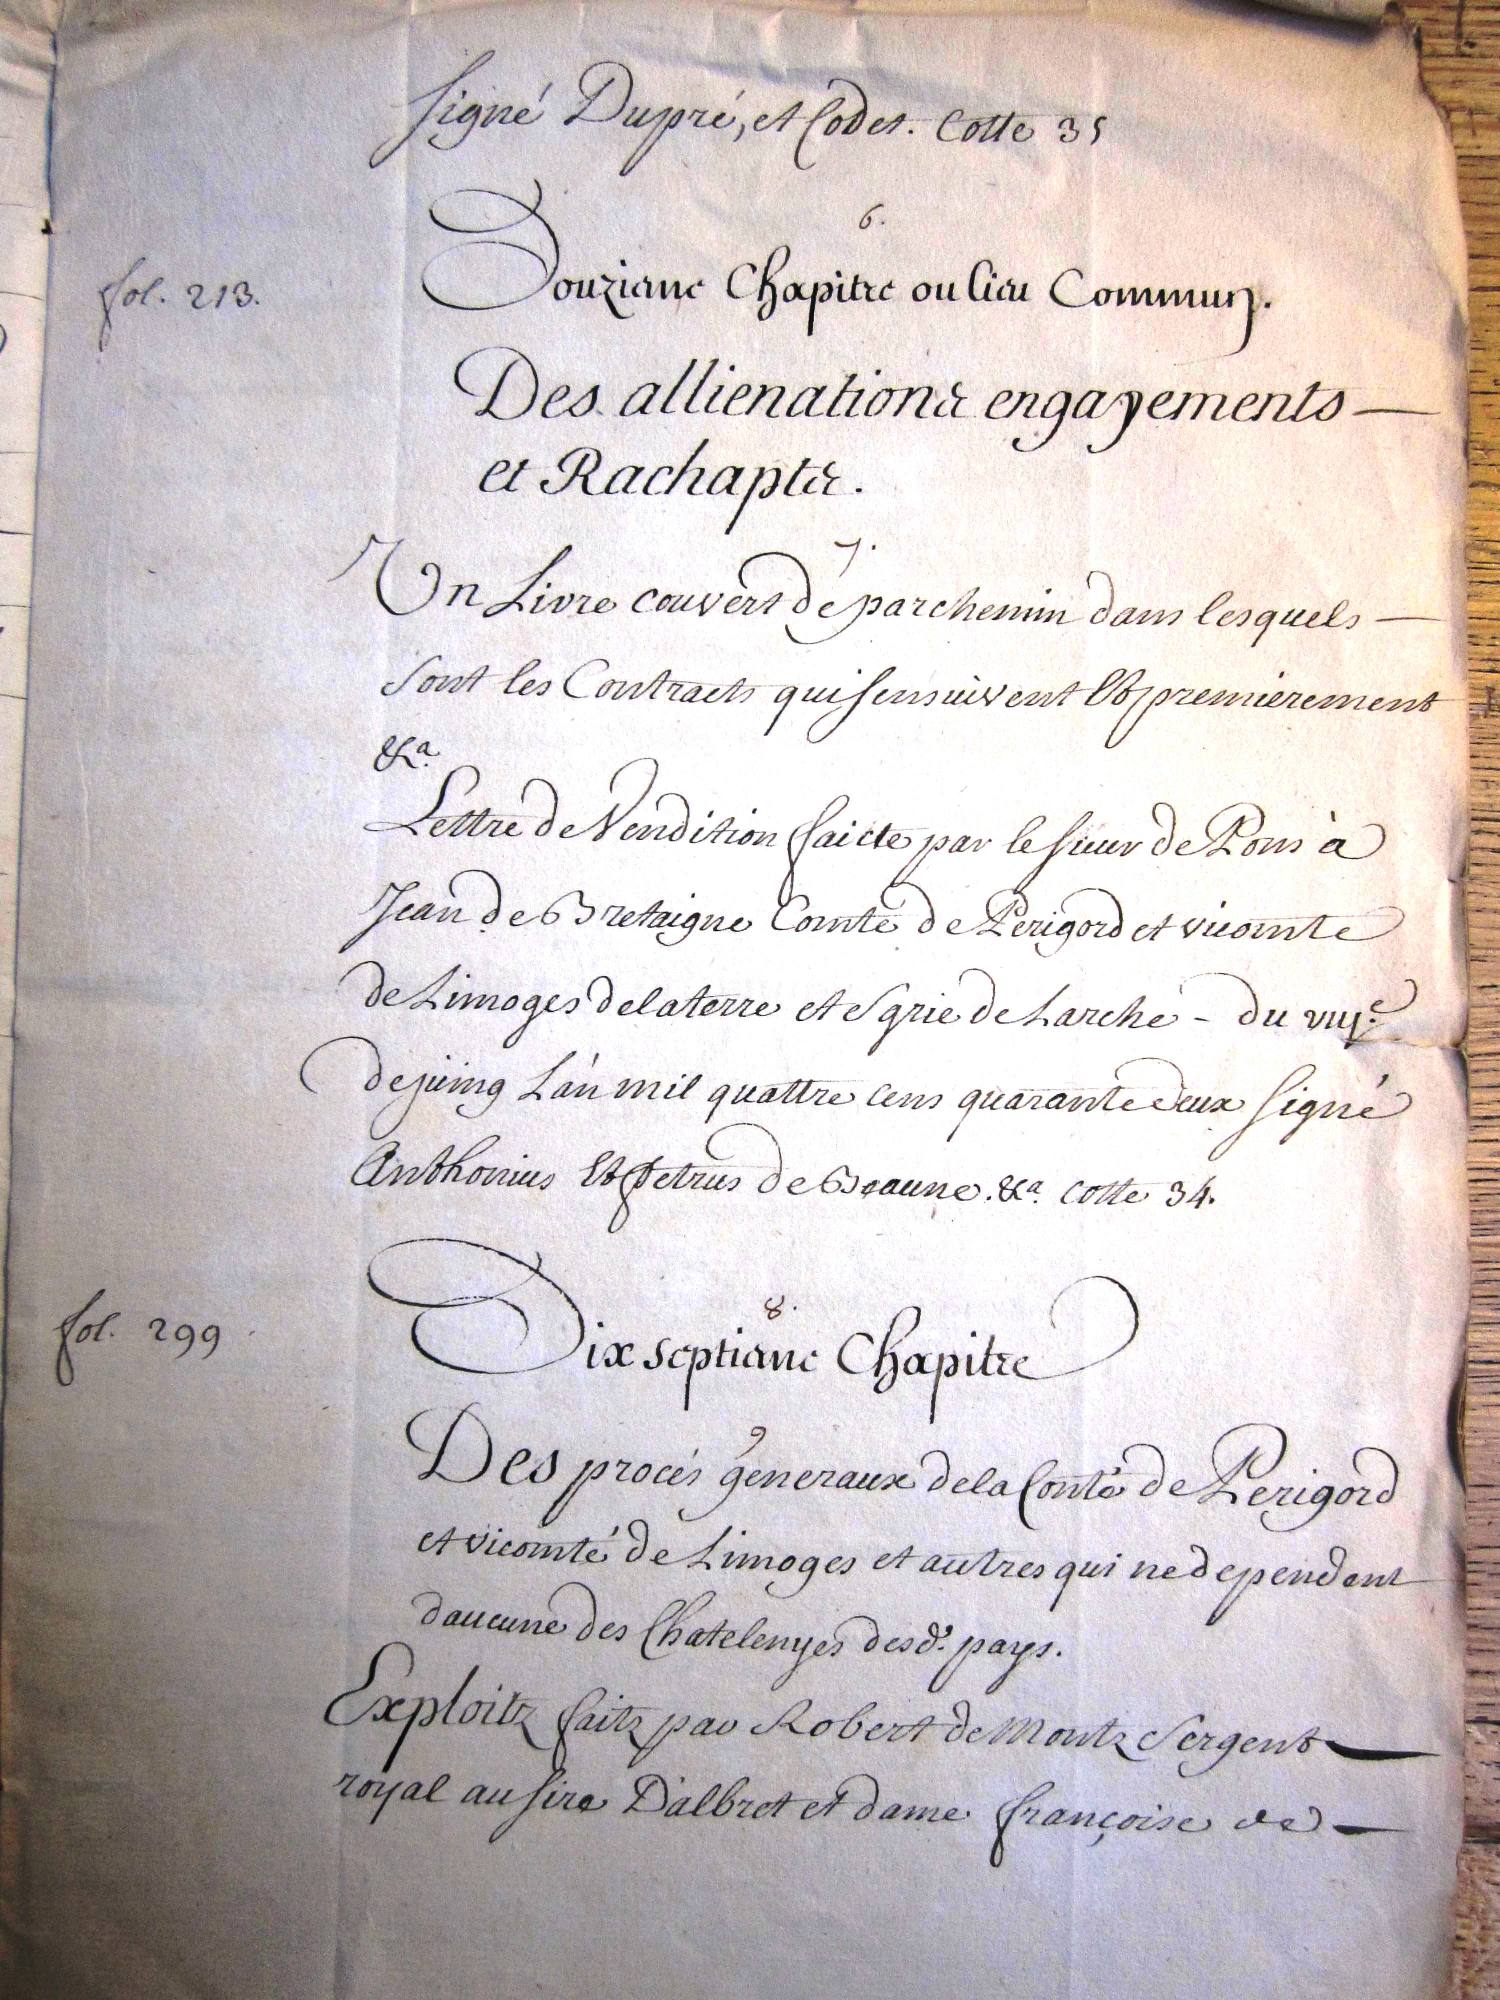 signé Dupré, et Codet. Cotte 35
6.
fol. 213.
Douzieme Chapitre ou lieu Commun.
Des allienations engagements
et Rachapts.
7.
Un Livre couvert de parchemin dans lesquels
sont les Contracts qui sensuivent Et premierement
&a.
Lettre de Vendition faicte par le sieur de Pons à
Jean de Bretaigne Comte de Perigord et vicomte
de Limoges de la terre et sgrie de Larche - du viij.e
de juing L'an mil quattre cens quarante deux signé
Anthonius Et Petrus de Beaune. &a. cotte 34.
8.
fol. 299
Dix septieme Chapitre
9
Des procés generaux de la Conté de Perigord
et vicomté de Limoges et autres qui ne dependent
daucune des Chatelenyes desd. pays.
Exploitz faitz par Robert de Montz Sergent
royal au sire D'albret et dame françoise de